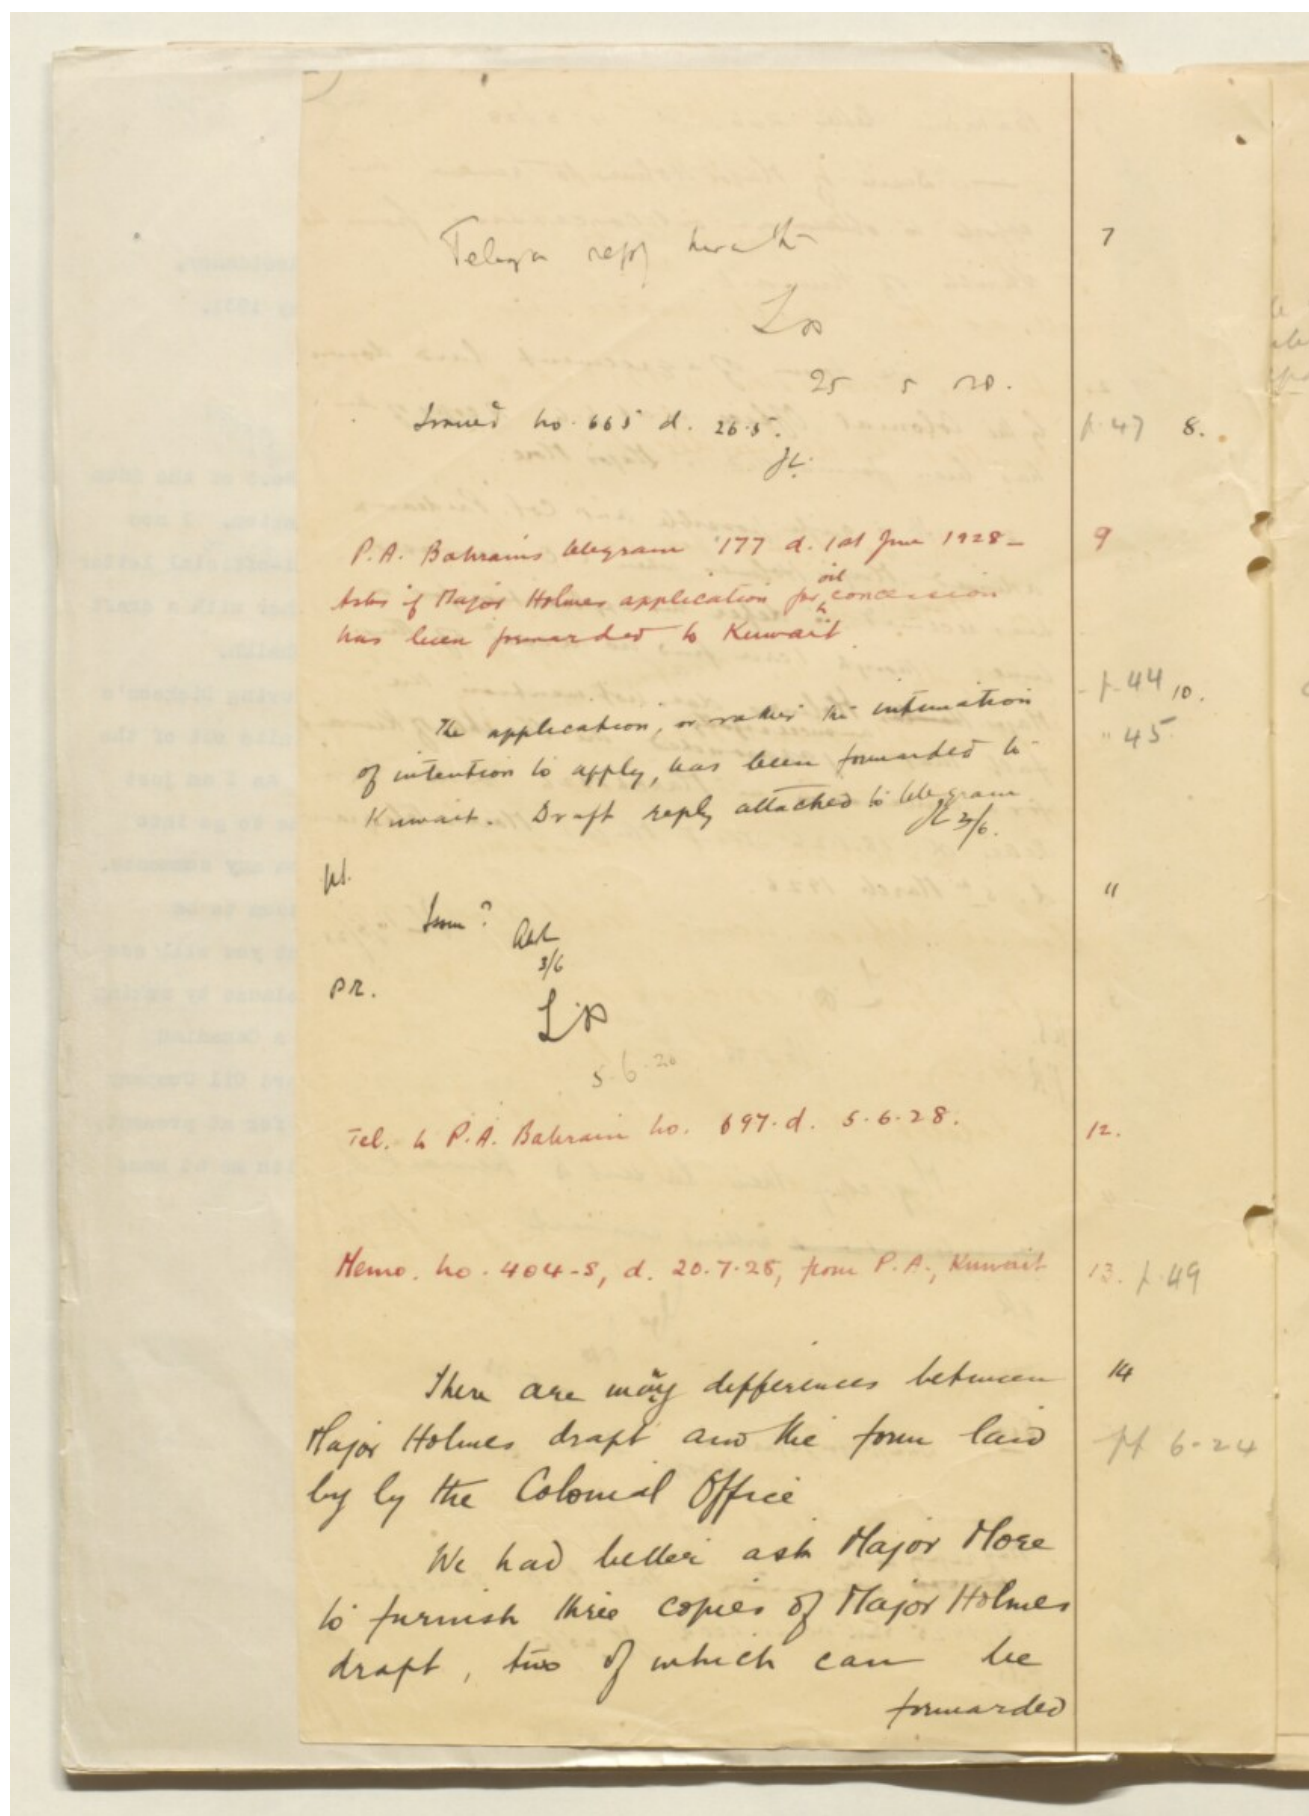 7
25 5
Issued no. 665 d. 26.5.
p. 47 8.
P.A. Bahrain's telegram 177 d. 1st June 1928 —
9
Asks if Major Holmes application for oil concession
has been forwarded to Kuwait
The application, or rather the intimation
p. 44 10.
of intention to apply, has been forwarded to
" 45
Kuwait. Draft reply attached to telegram
3/6.
Issue?
11
3/6
P.R.
5.6.28
Tel. to P.A. Bahrain no. 697. d. 5.6.28.
12.
Memo. no. 404-S, d. 20.7.28, from P.A., Kuwait
13. p. 49
There are many differences between
14
Major Holmes draft and the form laid
pp 6-24
by by the Colonial Office
We had better ask Major More
to furnish three copies of Major Holmes
draft, two of which can be
forwarded